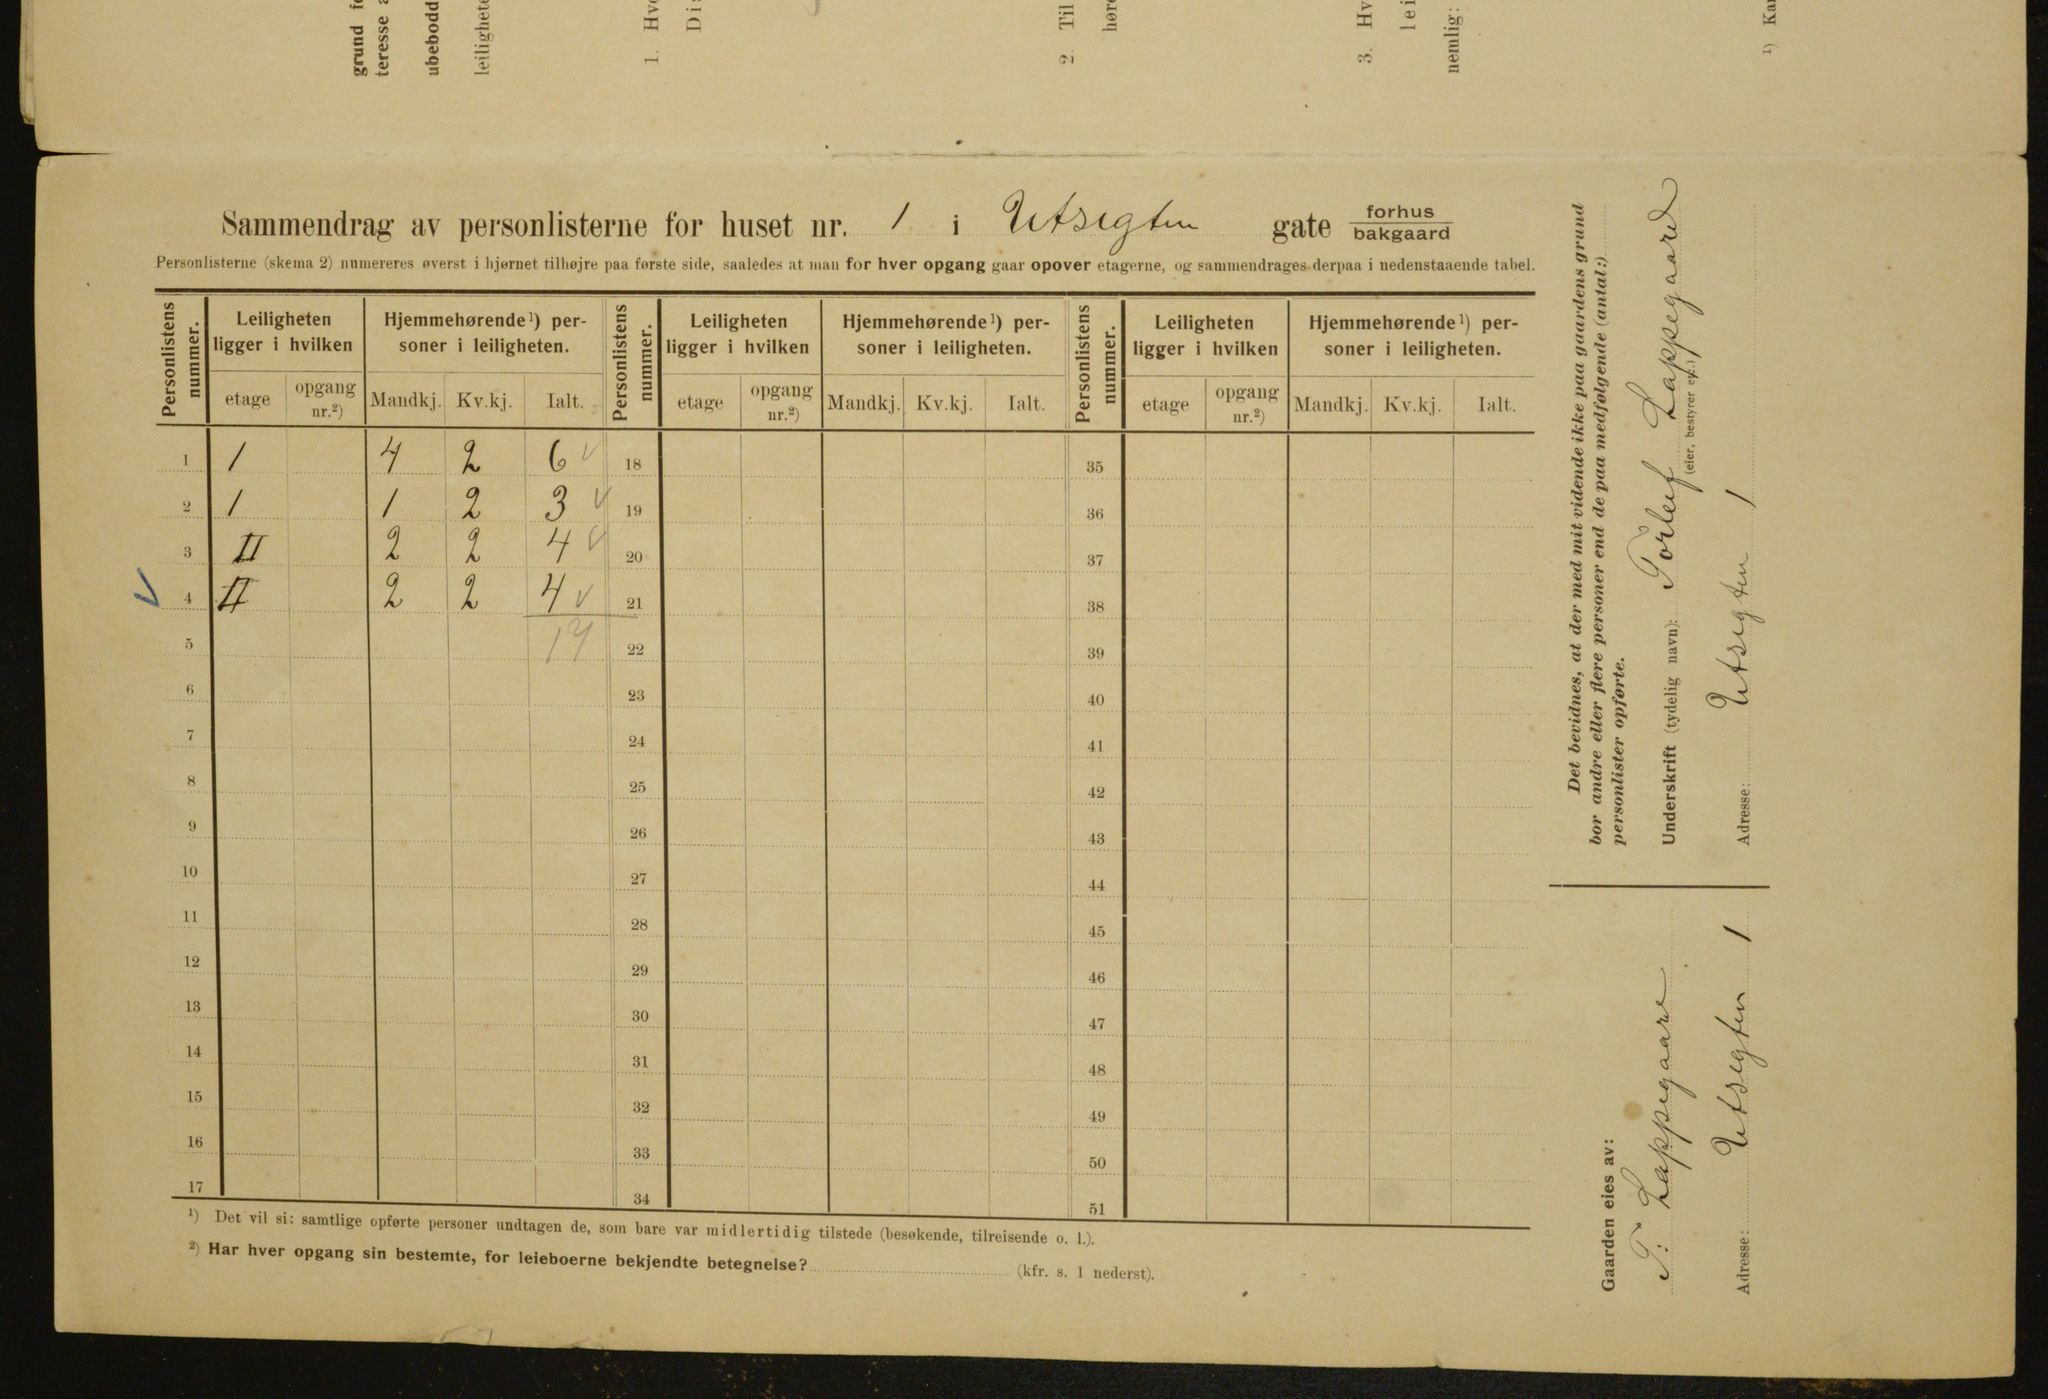 grund fo
teresse a
ubebodd
leilighete
1. Hvo
Dis
2. Til
høre
3. Hv
lei
nemlig:
¹) Kar
Sammendrag av personlisterne for huset nr. 1 i Utsigten gate forhus
bakgaard
Personlisterne (skema 2) numereres øverst i hjørnet tilhøjre paa første side, saaledes at man for hver opgang gaar opover etagerne, og sammendrages derpaa i nedenstaaende tabel.
Personlistens nummer. Leiligheten ligger i hvilken Hjemmehørende¹) personer i leiligheten. Personlistens nummer. Leiligheten ligger i hvilken Hjemmehørende¹) personer i leiligheten. Personlistens nummer. Leiligheten ligger i hvilken Hjemmehørende¹) personer i leiligheten.
etage opgang nr.²) Mandkj. Kv.kj. Ialt. etage opgang nr.²) Mandkj. Kv.kj. Ialt. etage opgang nr.²) Mandkj. Kv.kj. Ialt.
1 1 4 2 6 ✓ 18 35
2 1 1 2 3 ✓ 19 36
3 II 2 2 4 ✓ 20 37
✓ 4 II 2 2 4 ✓ 21 38
5 17 22 39
6 23 40
7 24 41
8 25 42
9 26 43
10 27 44
11 28 45
12 29 46
13 30 47
14 31 48
15 32 49
16 33 50
17 34 51
¹) Det vil si: samtlige opførte personer undtagen de, som bare var midlertidig tilstede (besøkende, tilreisende o. l.).
²) Har hver opgang sin bestemte, for leieboerne bekjendte betegnelse? (kfr. s. 1 nederst).
Det bevidnes, at der med mit vidende ikke paa gaardens grund
bor andre eller flere personer end de paa medfølgende (antal:)
personlister opførte.
Underskrift (tydelig navn): Torleif Lappegaard
(eier, bestyrer etc.)
Adresse: Utsigten 1
Gaarden eies av:
T: Lappegaard
Adresse: Utsigten 1